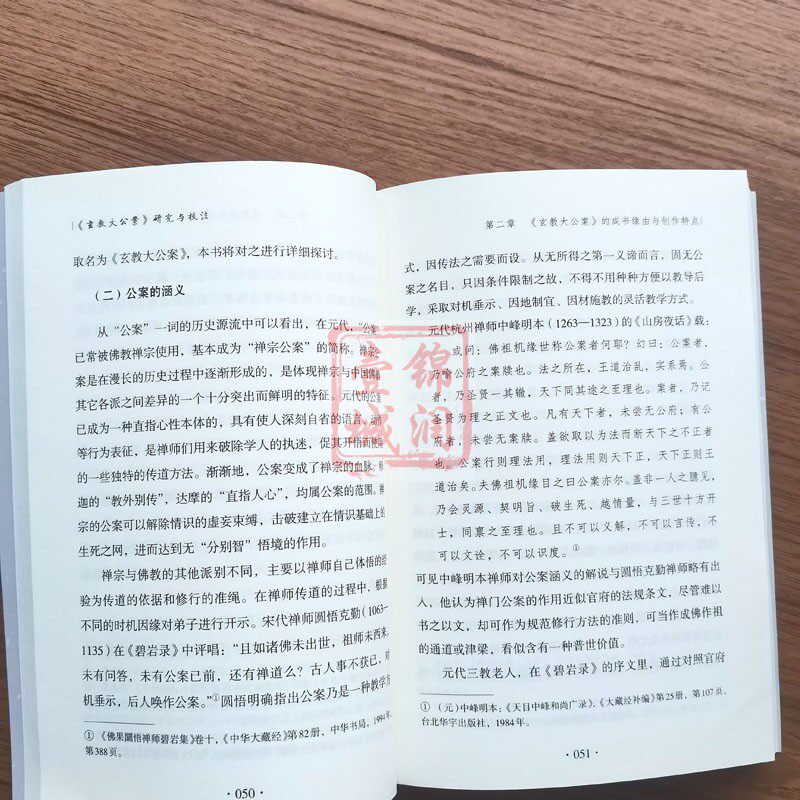 《玄教大公案》研究与校注
取名为《玄教大公案》，本书将对之进行详细探讨。
（二）公案的涵义
从“公案”一词的历史源流中可以看出，在元代，“公案
已常被佛教禅宗使用，基本成为“禅宗公案”的简称。禅宗
案是在漫长的历史过程中逐渐形成的，是体现禅宗与中国佛
其它各派之间差异的一个十分突出而鲜明的特征。元代的公
已成为一种直指心性本体的，具有使人深刻自省的语言、动
等行为表征，是禅师们用来破除学人的执迷，促其开悟而使
的一些独特的传道方法。渐渐地，公案变成了禅宗的血脉，
迦的“教外别传”，达摩的“直指人心”，均属公案的范围。禅
宗的公案可以解除情识的虚妄束缚，击破建立在情识基础上的
生死之网，进而达到无“分别智”悟境的作用。
禅宗与佛教的其他派别不同，主要以禅师自己体悟的经
验为传道的依据和修行的准绳。在禅师传道的过程中，根据
不同的时机因缘对弟子进行开示。宋代禅师圆悟克勤（1063—
1135）在《碧岩录》中评唱：“且如诸佛未出世，祖师未西来，
未有问答，未有公案已前，还有禅道么？古人事不获已，对
机垂示，后人唤作公案。”①圆悟明确指出公案乃是一种教学方
① 《佛果圜悟禅师碧岩集》卷十，《中华大藏经》第82册，中华书局，1994年，
第388页。
·050·
第二章 《玄教大公案》的成书缘由与创作特点
式，因传法之需要而设。从无所得之第一义谛而言，固无公
案之名目，只因条件限制之故，不得不用种种方便以教导后
学，采取对机垂示、因地制宜、因材施教的灵活教学方式。
元代杭州禅师中峰明本（1263—1323）的《山房夜话》载：
或问：佛祖机缘世称公案者何耶？幻曰：公案者，
乃喻公府之案牍也。法之所在，王道治乱，实系焉。公
者，乃圣贤一其辙，天下同其途之至理也。案者，乃记
圣贤为理之正文也。凡有天下者，未尝无公府；有公
府者，未尝无案牍。盖欲取以为法而断天下之不正者
也。公案行则理法用，理法用则天下正，天下正则王
道治矣。夫佛祖机缘目之曰公案亦尔。盖非一人之臆见，
乃会灵源、契明旨、破生死、越情量，与三世十方开
士，同禀之至理也。且不可以义解，不可以言传，不
可以文诠，不可以识度。①
可见中峰明本禅师对公案涵义的解说与圆悟克勤禅师略有出
入，他认为禅门公案的作用近似官府的法规条文，尽管难以
书之以文，却可作为规范修行方法的准则，可当作成佛作祖
的通道或津梁，看似含有一种普世价值。
元代三教老人，在《碧岩录》的序文里，通过对照官府
① （元）中峰明本：《天目中峰和尚广录》，《大藏经补编》第25册，第107页，
台北华宇出版社，1984年。
·051·
锦润
壹城